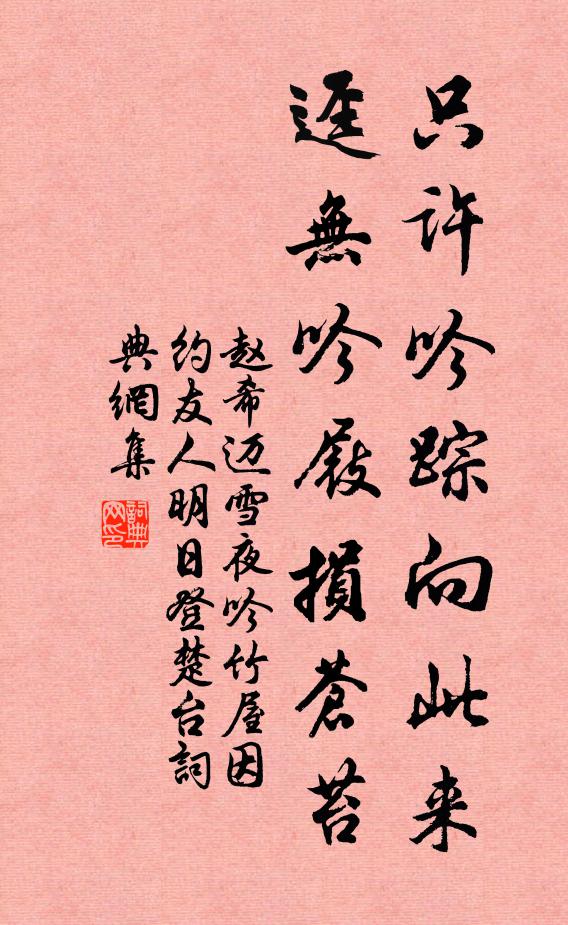 只許吟踪向此来
逕無吟屐損蒼苔
赵希迈雪夜吟竹屋因
约友人明日登楚台詞
典網集
詞典
网印